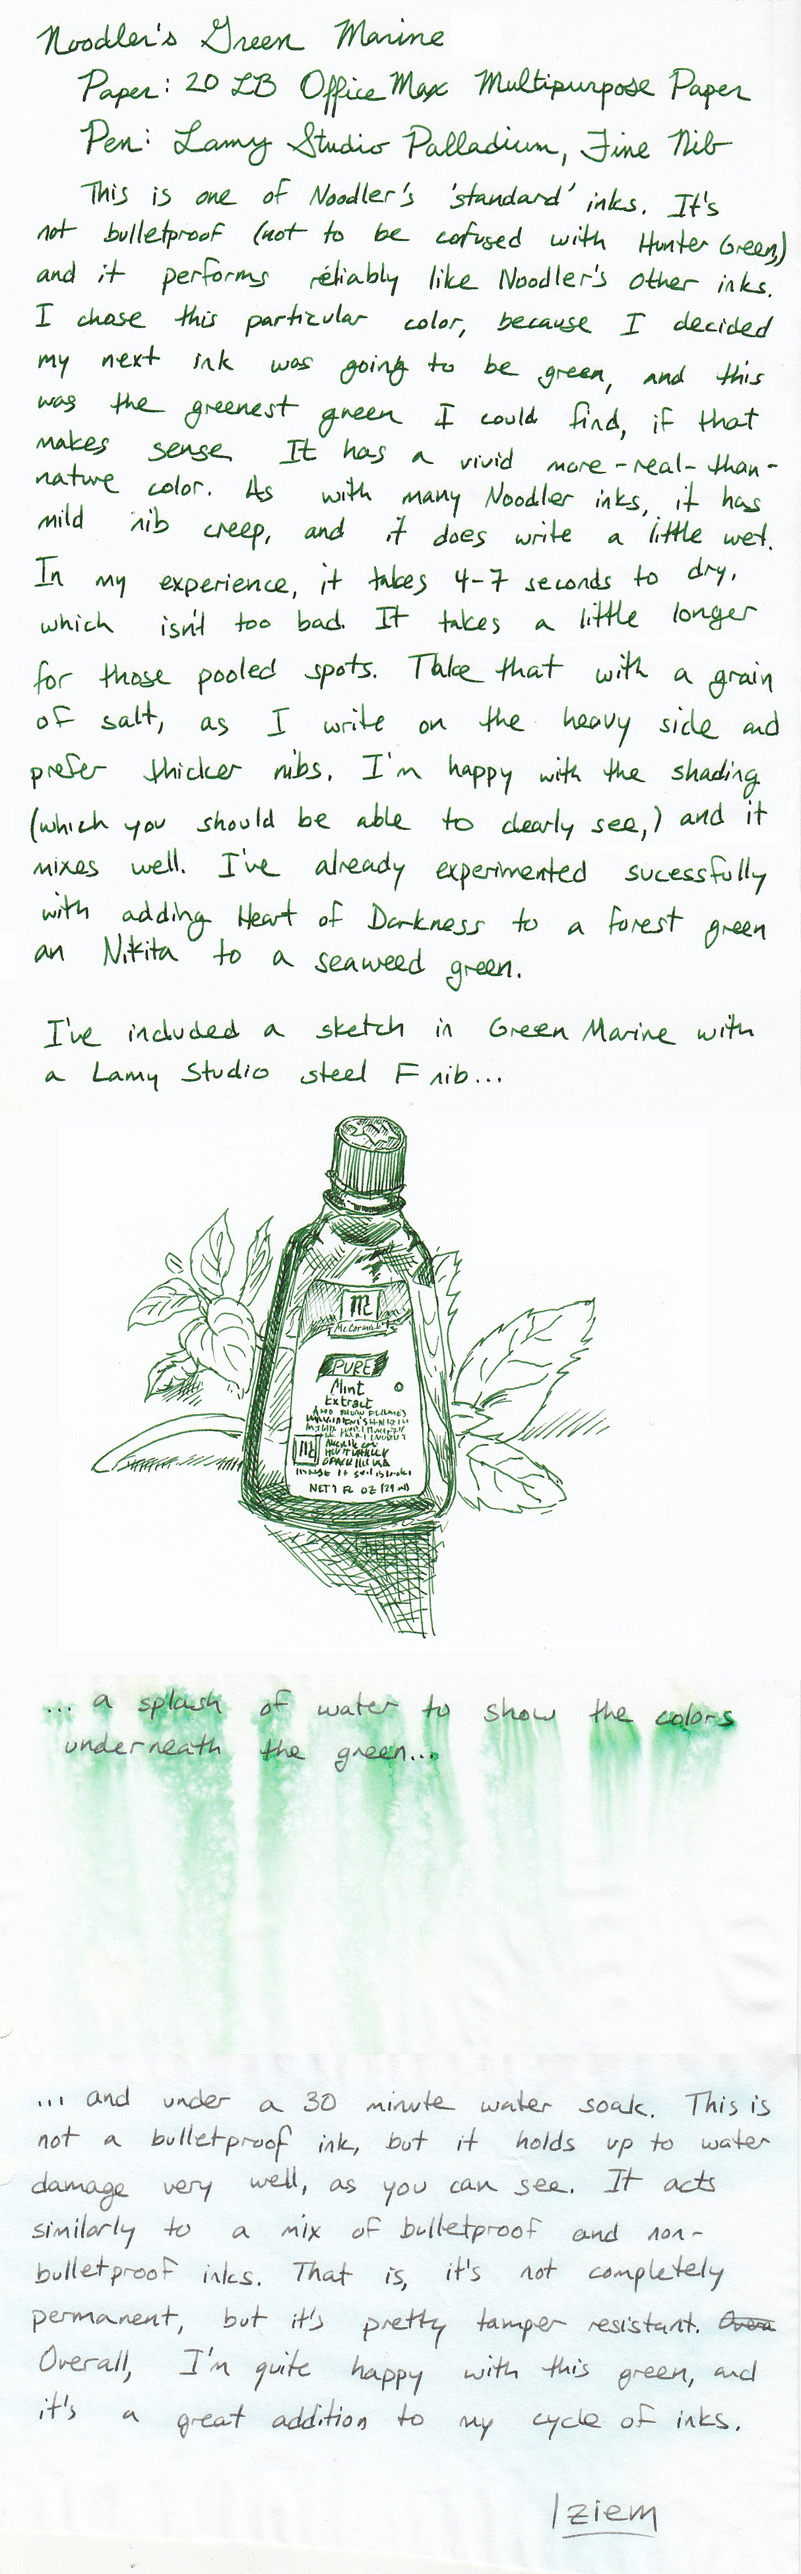 Noodler's Green Marine
Paper: 20 LB OfficeMax Multipurpose Paper
Pen: Lamy Studio Palladium, Fine Nib
This is one of Noodler's 'standard' inks. It's
not bulletproof (not to be cofused with Hunter Green,)
and it performs reliably like Noodler's other inks.
I chose this particular color, because I decided
my next ink was going to be green, and this
was the greenest green I could find, if that
makes sense. It has a vivid more-real-than-
nature color. As with many Noodler inks, it has
mild nib creep, and it does write a little wet.
In my experience, it takes 4-7 seconds to dry,
which isn't too bad. It takes a little longer
for those pooled spots. Take that with a grain
of salt, as I write on the heavy side and
prefer thicker nibs. I'm happy with the shading
(which you should be able to clearly see,) and it
mixes well. I've already experimented sucessfully
with adding Heart of Darkness to a forest green
an Nikita to a seaweed green.
I've included a sketch in Green Marine with
a Lamy Studio steel F nib...
Mc
McCormick
PURE
Mint
Extract
NET 1 FL OZ (29 ml)
... a splash of water to show the colors
underneath the green...
... and under a 30 minute water soak. This is
not a bulletproof ink, but it holds up to water
damage very well, as you can see. It acts
similarly to a mix of bulletproof and non-
bulletproof inks. That is, it's not completely
permanent, but it's pretty tamper resistant. Overa
Overall, I'm quite happy with this green, and
it's a great addition to my cycle of inks.
Iziem